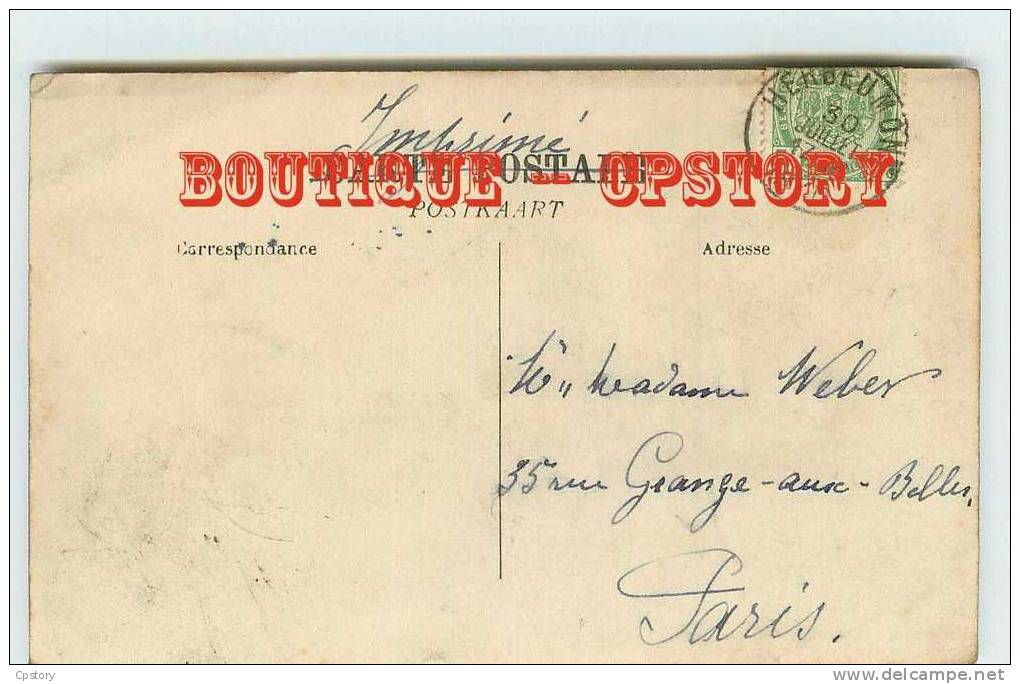 Imprimé
CARTE POSTALE
BOUTIQUE - CPSTORY
POSTKAART
HERBEUMONT
30
JUILLET
Correspondance
Adresse
Madame Weber
35 rue Grange-aux-Belles,
Paris.
Cpstory
www.delcampe.net